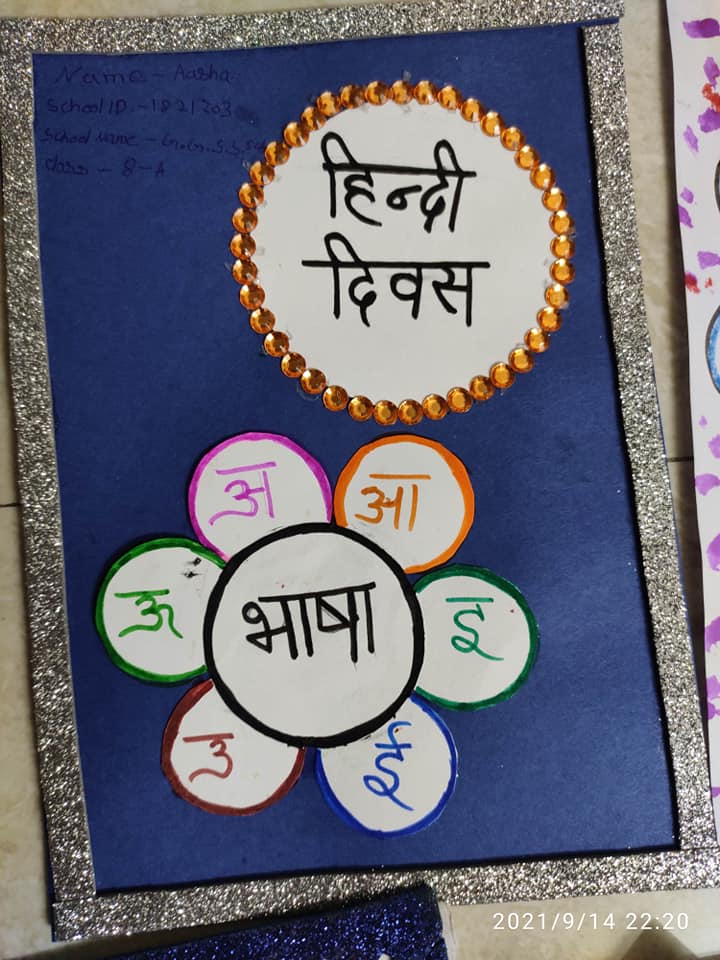 Name - Aasha
School ID - 1821203
School Name - G.G.S.S.
Class - 8-A
हिन्दी
दिवस
अ
आ
ऊ
भाषा
इ
उ
ई
2021/9/14 22:20